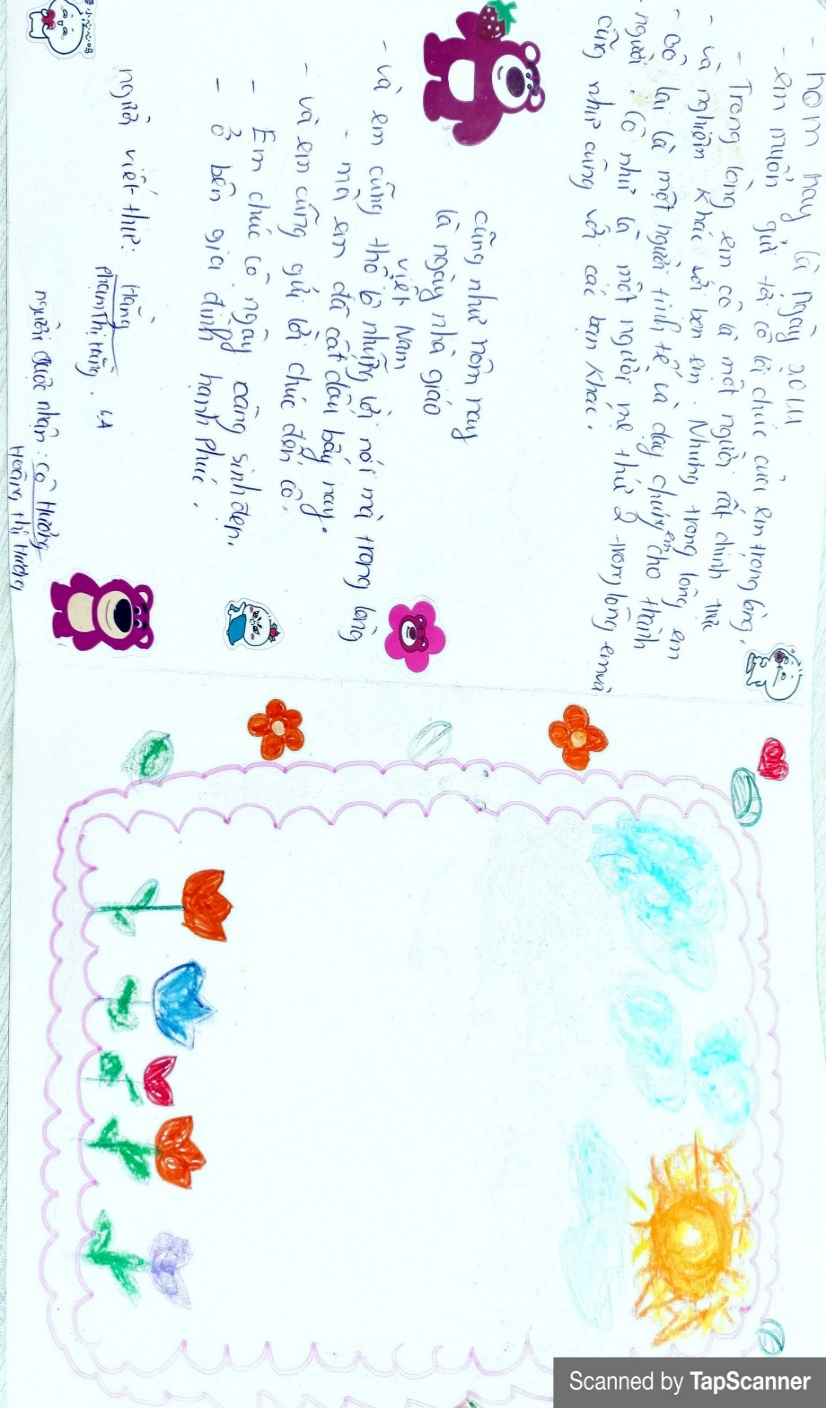 - hôm nay là ngày 20/11
- em muốn gửi tới cô lời chúc của em trong lòng.
- Trong lòng em cô là một người rất chính trực
- và nghiêm khác với bọn em. Nhưng trong lòng em
- cô lại là một người tinh tế và dạy chúng em cho thành
người. cô như là một người mẹ thứ 2 trong lòng em và
cũng như cũng với các bạn khác.
cũng như hôm nay
là ngày nhà giáo
việt Nam
- và em cũng thổ lộ những lời nói mà trong lòng
- mà em đã cất dấu bấy nay.
- và em cũng gửi lời chúc đến cô.
- Em chúc cô ngày càng sinh đẹp.
- ở bên gia đình hạnh phúc.
người viết thư: Hằng
Phạm Thị Hằng. 4A
người được nhận: cô Hường
Hoàng thị Hường
Scanned by TapScanner